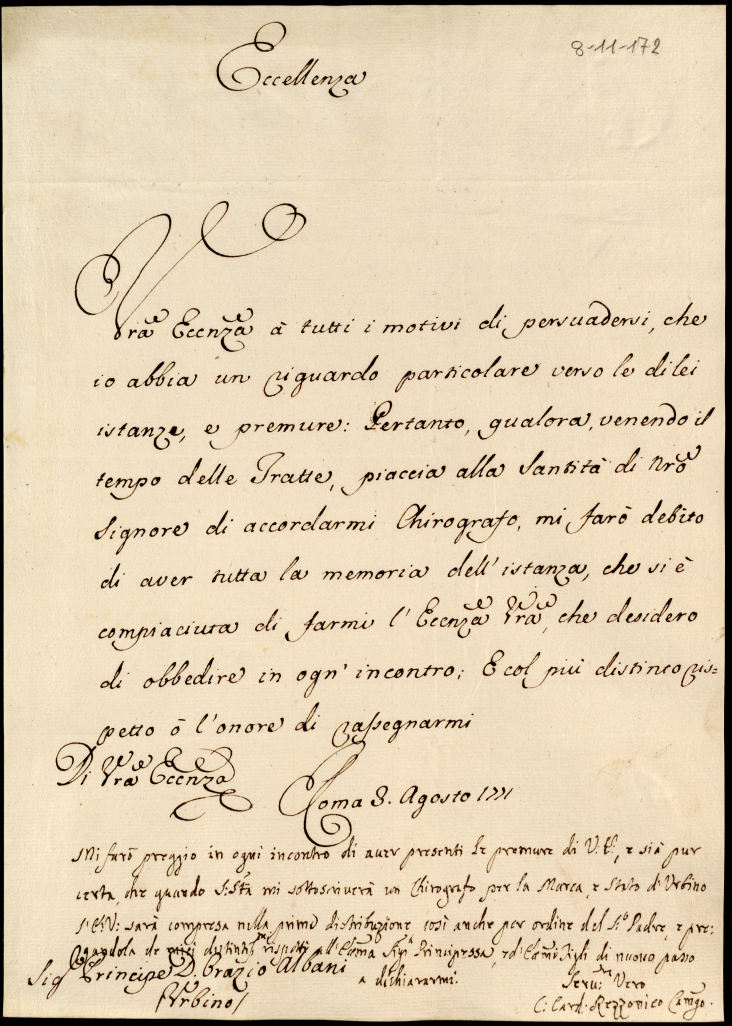 8-11-172
Eccellenza
Vrã Ecenzã à tutti i motivi di persuadersi, che
io abbia un riguardo particolare verso le di lei
istanze, e premure: Pertanto, qualora, venendo il
tempo delle Tratte, piaccia alla Santità di Nrõ
Signore di accordarmi Chirografo, mi farò debito
di aver tutta la memoria dell'istanza, che si è
compiaciuta di farmi l'Ecenzã Vrã, che desidero
di obbedire in ogn'incontro; E col più distinto ris=
petto ò l'onore di rassegnarmi
Di Vrã Ecenzã
Roma 3. Agosto 1771
Mi farò preggio in ogni incontro di aver presenti le premure di V. E., e sià pur
certa, che quando S: Stà mi sottoscriverà un Chirografo per la Marca, e Stato d'Urbino
l'E.V: sarà compresa nella prima distribuzione così anche per ordine del S.º Padre, e pre:
gandola de miei distintiss.mi rispetti all' Ecc.ma Sig.ª Principessa, ed Ecc.mi Figli di nuovo passo
a dichiararmi.
Sig Principe D. Orazio Albani
Urbino/
Serv: Vero
C: Card. Rezzonico Camgo.